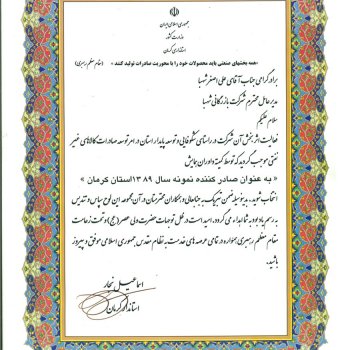 جمهوری اسلامی ایران
وزارت کشور
استانداری کرمان
«همه بخشهای صنعتی باید محصولات خود را با محوریت صادرات تولید کنند» (مقام معظم رهبری)
برادر گرامی جناب آقای علی اصغر شهبا
مدیر عامل محترم شرکت بازرگانی شهبا
سلام علیکم
فعالیت اثر بخش آن شرکت در راستای شکوفائی و توسعه پایدار استان در امر توسعه صادرات کالاهای غیر
نفتی موجب گردید که توسط کمیته داوران همایش
«به عنوان صادر کننده نمونه سال ۱۳۸۹ استان کرمان»
انتخاب شوید، بدینوسیله ضمن تبریک به جنابعالی و همکاران محترمتان در آن مجموعه این لوح سپاس و تقدیس
به رسم یادبود به شما اهداء می گردد. امید است در ظل توجهات حضرت ولی عصر (عج) و تحت زعامت
مقام معظم رهبری همواره در تمامی عرصه های خدمت به نظام مقدس جمهوری اسلامی موفق و پیروز
باشید.
اسماعیل نجار
استاندار کرمان